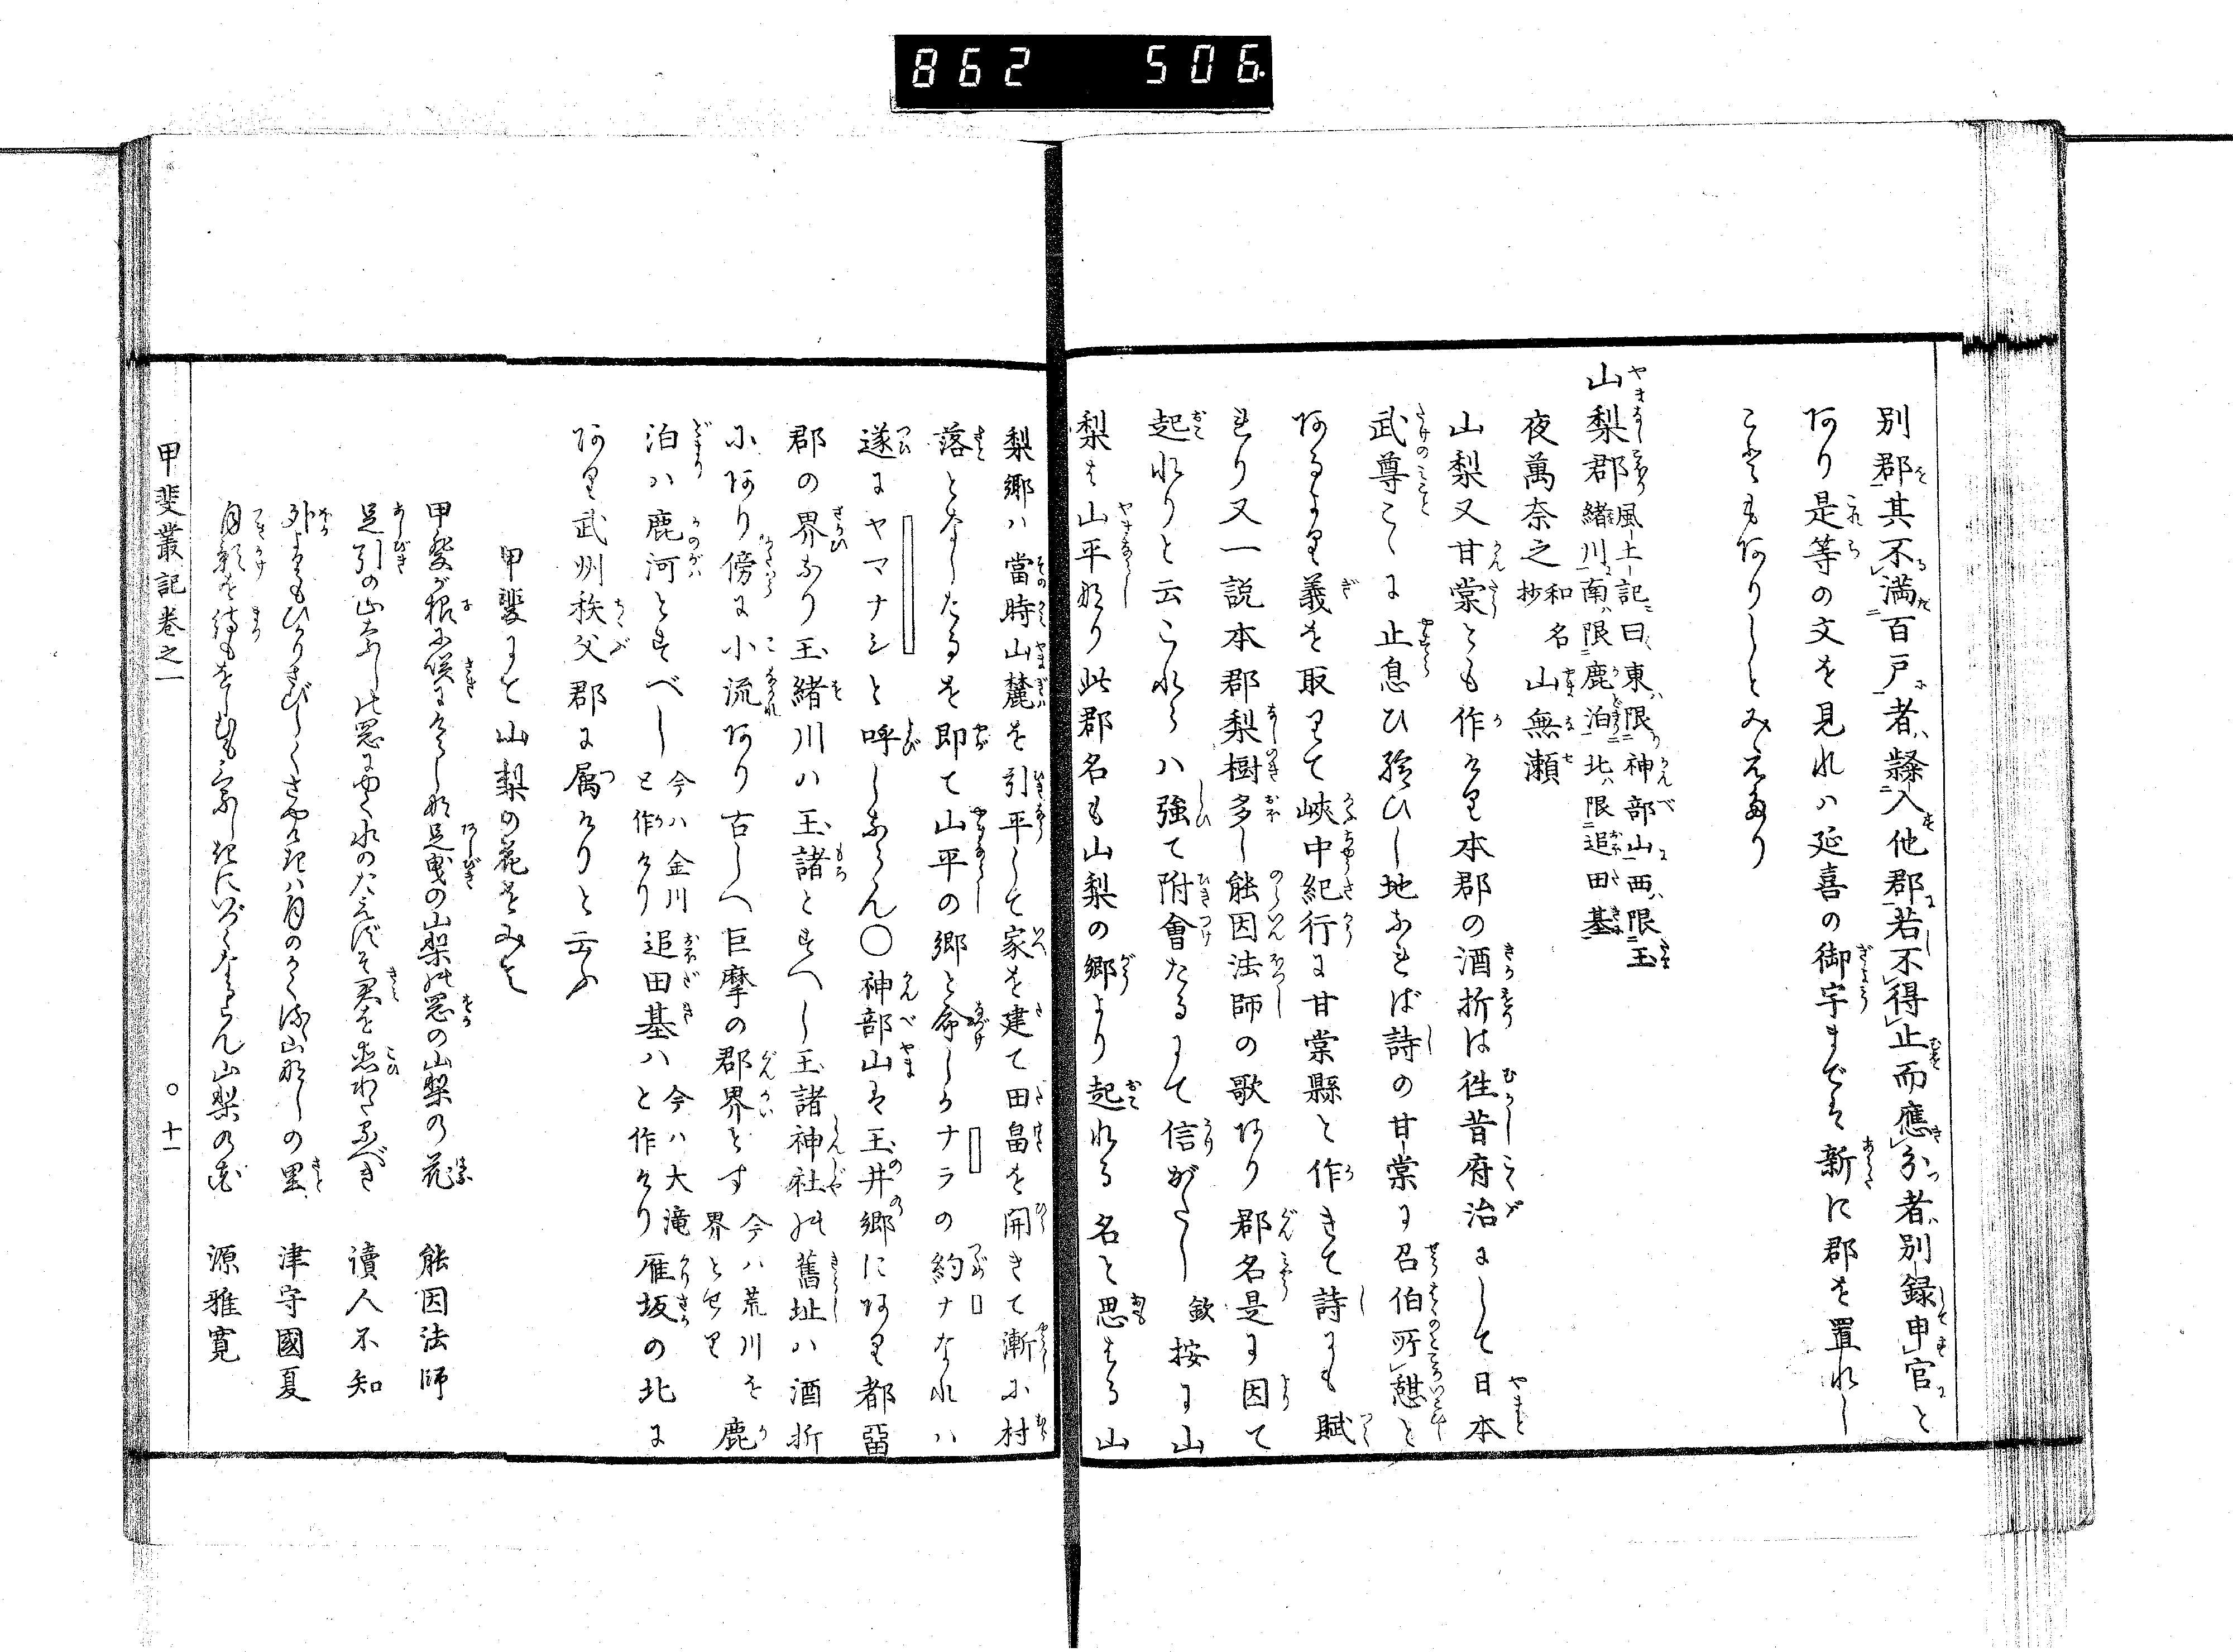 862 506.
別郡其不満百戸者隸入他郡若不得止而應分者別録申官と
阿り是等の文を見れハ延喜の御宇までも新に郡を置れし
ことも阿りしとみえたり
山梨郡 風土記ニ曰東ハ限神部山西ハ限玉
緒川南ハ限鹿泊北ハ限追田基
夜萬奈之 和名抄 山無瀬
山梨又甘棠とも作けり本郡の酒折は徃昔府治にして日本
武尊こゝに止息ひ給ひし地なれば詩の甘棠に召伯所憩と
阿るより義を取りて峽中紀行に甘棠縣と作きて詩にも賦
せり又一説本郡梨樹多し能因法師の歌阿り郡名是に因て
起れりと云これらハ強て附會たるにて信がたし 欽按に山
梨は山平なり此郡名も山梨の郷より起れる名と思はる山
梨郷ハ當時山麓を引平して家を建て田畠を開きて漸に村
落となしたるを即て山平の郷と命しかナラの約ナなれハ
遂にヤマナシと呼しならん〇神部山は玉井郷に阿り都留
郡の界なり玉緒川ハ玉諸とすへし玉諸神社の舊址ハ酒折
に阿り傍に小流阿り古しへ巨摩の郡界とす 今ハ荒川を界とせり 鹿
泊ハ鹿河とすべし 今ハ金川と作けり 追田基ハ 今ハ大滝と作けり 雁坂の北に
阿り武州秩父郡に属けりと云ふ
甲斐にて山梨の花をみて
甲斐が根に咲にけらしな足曳の山梨の罡の山梨の花 能因法師
足引の山なしの罡に 讀人不知
外 山なしの里 津守國夏
月影を待 山梨の 源雅寛
甲斐叢記巻之一 〇十一